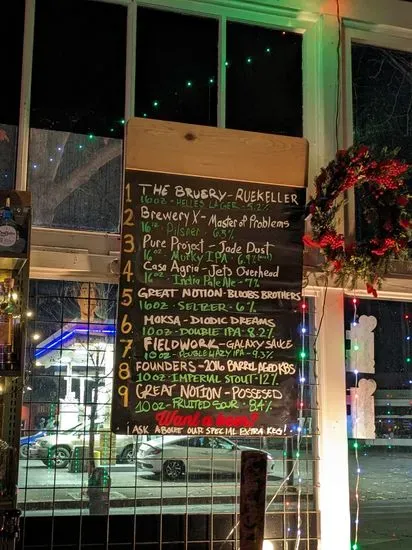 1 THE BRUERY - RUEKELLER
16oz - HELLES LAGER - 5.2%
2 Brewery X - Master of Problems
16oz Pilsner 6.3%
3 Pure Project - Jade Dust
16oz - Murky IPA 6.9%
4 Casa Agria - Jets Overhead
16oz - India Pale Ale - 7%
5 GREAT NOTION - BLOOBS BROTHERS
16oz - SELTZER - 6%
6 MOKSA - IDIODIC DREAMS
10oz - DOUBLE IPA - 8.2%
7 FIELDWORK - GALAXY SAUCE
10oz - DOUBLE HAZY IPA - 9.3%
8 FOUNDERS - 2016 BARREL AGED KBS
10oz IMPERIAL STOUT - 12%
9 GREAT NOTION - POSSESED
10oz - FRUITED SOUR - 8.4%
Want a
ASK ABOUT OUR SPECIAL EXTRA KEG!